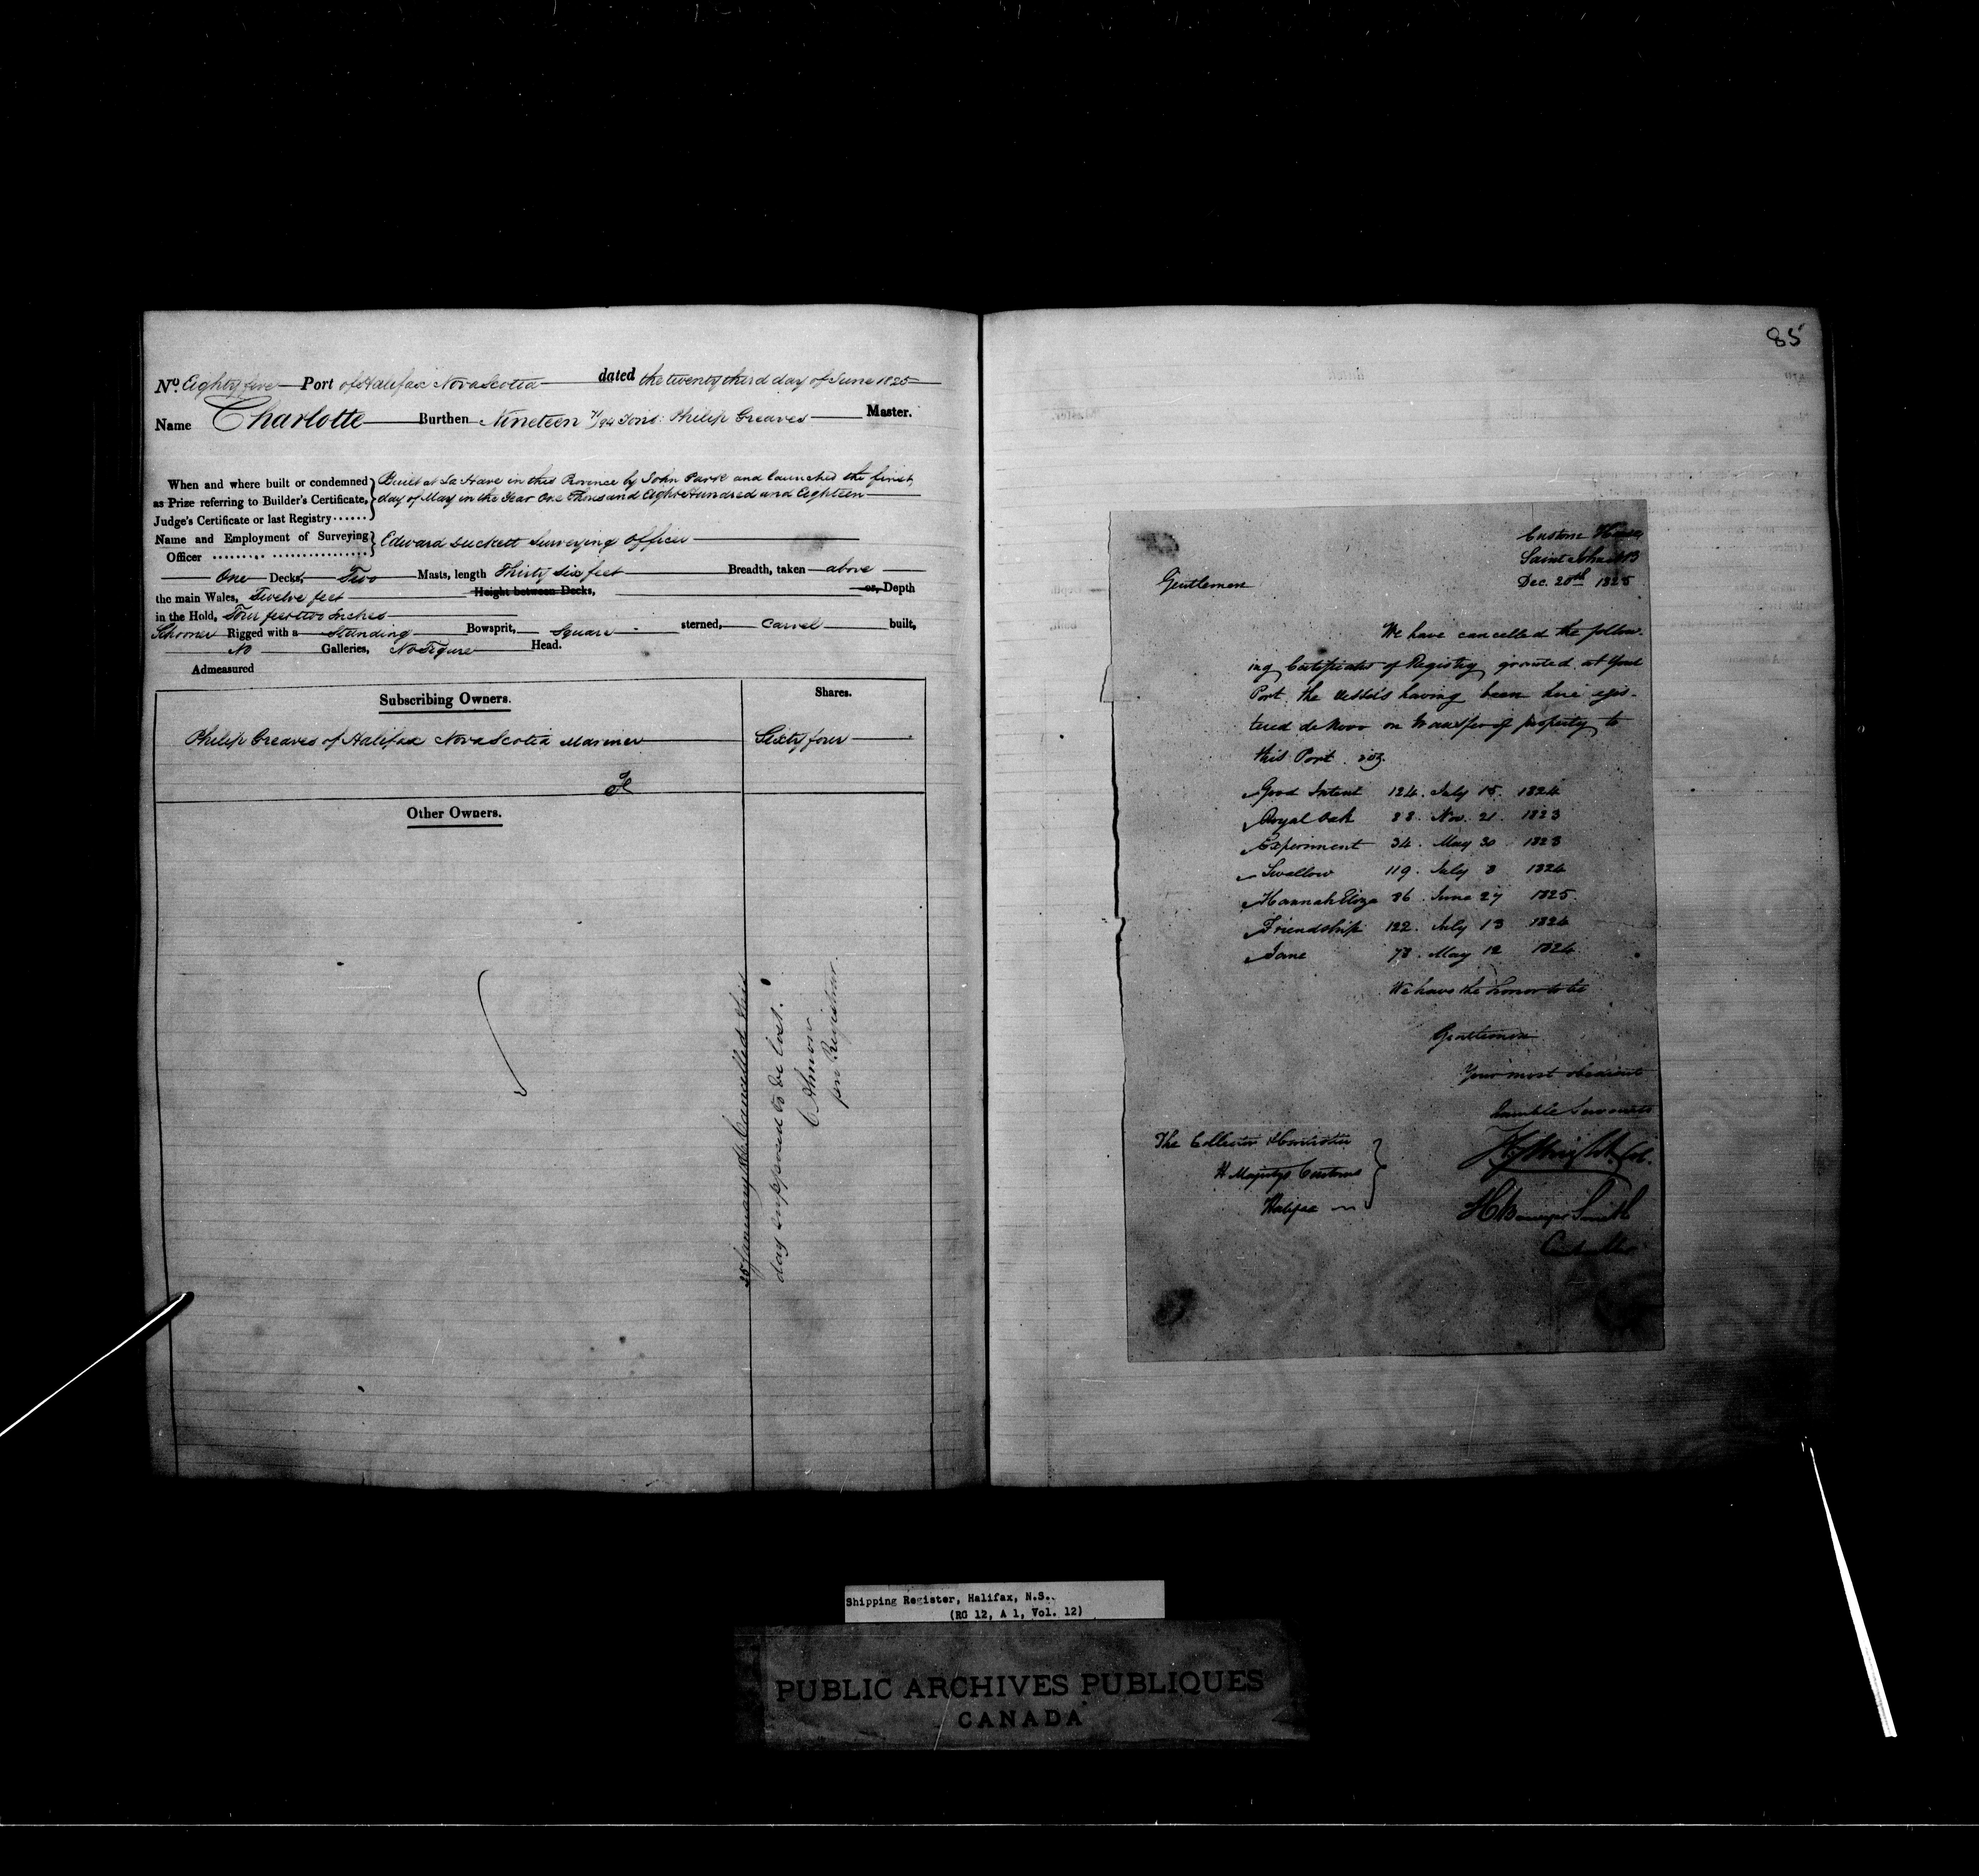 No. Eighty five Port of Halifax Nova Scotia dated the twenty third day of June 1825
Name Charlotte Burthen Nineteen 71/94 Tons: Philip Greaves Master.
When and where built or condemned
as Prize referring to Builder's Certificate,
Judge's Certificate or last Registry ......
Built at La Have in this Province by John Park and launched the first
day of May in the Year One Thousand Eight Hundred and Eighteen
Name and Employment of Surveying
Officer
Edward Duckett Surveying Officer
One Decks, Two Masts, length Thirty six feet Breadth, taken above
the main Wales, Twelve feet Height between Decks, or, Depth
in the Hold, Four feet two Inches
Schooner Rigged with a Standing Bowsprit, Square sterned, Carvel built,
No Galleries, No Figure Head.
Admeasured
Subscribing Owners. Shares.
Philip Greaves of Halifax Nova Scotia Mariner Sixty four
Other Owners.
Cancelled this
day supposed to be lost.
C Almon
per Registrar.
85
Custom House
Saint John NB
Dec. 20th 1825
Gentlemen
We have cancelled the follow-
ing Certificates of Registry granted at your
Port the vessels having been here regis-
tered de Novo on transfer of property to
this Port. viz.
Good Intent 124. July 15. 1824
Royal Oak 88. Nov. 21. 1823
Experiment 34. May 30 1823
Swallow 119. July 8 1824
Hannah Eliza 86. June 27 1825.
Friendship 122. July 13 1824
Jane 78. May 12 1824
We have the honor to be
Gentlemen
Your most obedient
humble Servants
The Collector & Controller
H Majestys Customs
Halifax
H Wright Col.
Smith
Controller
Shipping Register, Halifax, N.S.
(RG 12, A 1, Vol. 12)
PUBLIC ARCHIVES PUBLIQUES
CANADA